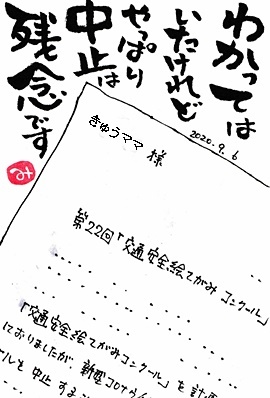 わかっては
いたけれど
やっぱり
中止は
残念です
み
2020.9.6
きゅうママ 様
第22回「交通安全絵てがみコンクール」
「交通安全絵てがみコンクール」を計画
ておりましたが、新型コロナウ
ールを中止する